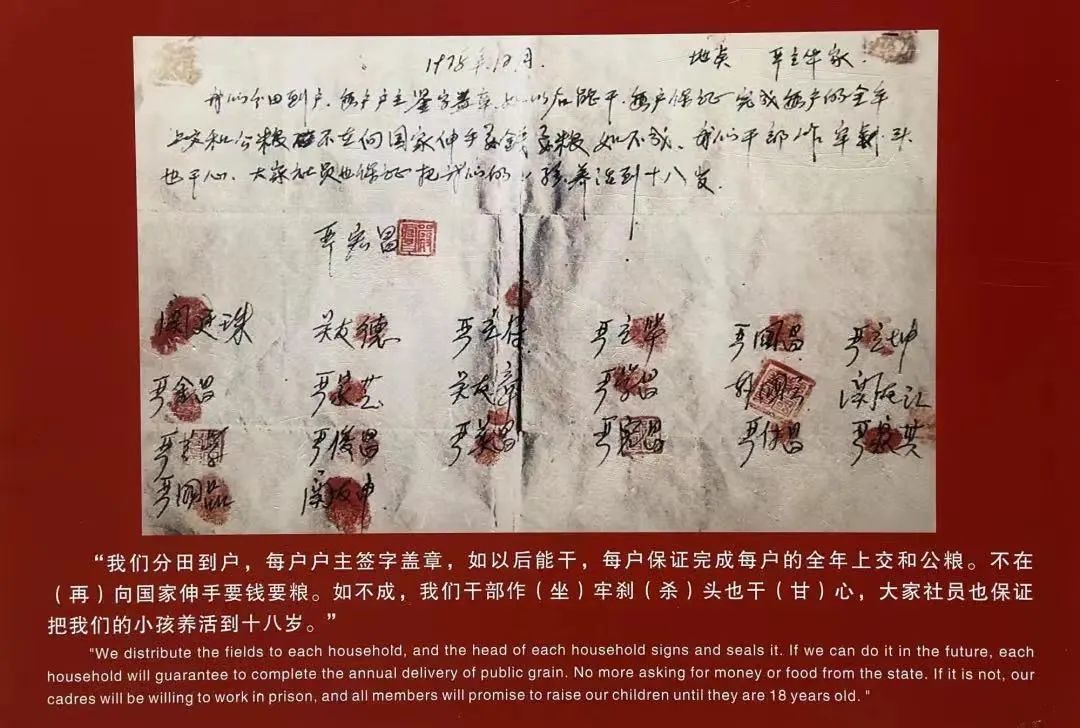 1978年12月. 地点 严立华家.
我们分田到户.每户户主签字盖章.如以后能干.每户保证完成每户的全年
上交和公粮不在向国家伸手要钱要粮如不成.我们干部作牢刹头
也干心.大家社员也保证把我们的小孩养活到十八岁.
严宏昌
关廷珠 关友德 严立符 严立华 严国昌 严立坤
严金昌 严家芝 关友章 严学昌 韩国云 关友江
严立学 严俊昌 严美昌 严宏昌 严付昌 严家其
严国品 关友申
“我们分田到户，每户户主签字盖章，如以后能干，每户保证完成每户的全年上交和公粮。不在
（再）向国家伸手要钱要粮。如不成，我们干部作（坐）牢刹（杀）头也干（甘）心，大家社员也保证
把我们的小孩养活到十八岁。”
"We distribute the fields to each household, and the head of each household signs and seals it. If we can do it in the future, each
household will guarantee to complete the annual delivery of public grain. No more asking for money or food from the state. If it is not, our
cadres will be willing to work in prison, and all members will promise to raise our children until they are 18 years old. "